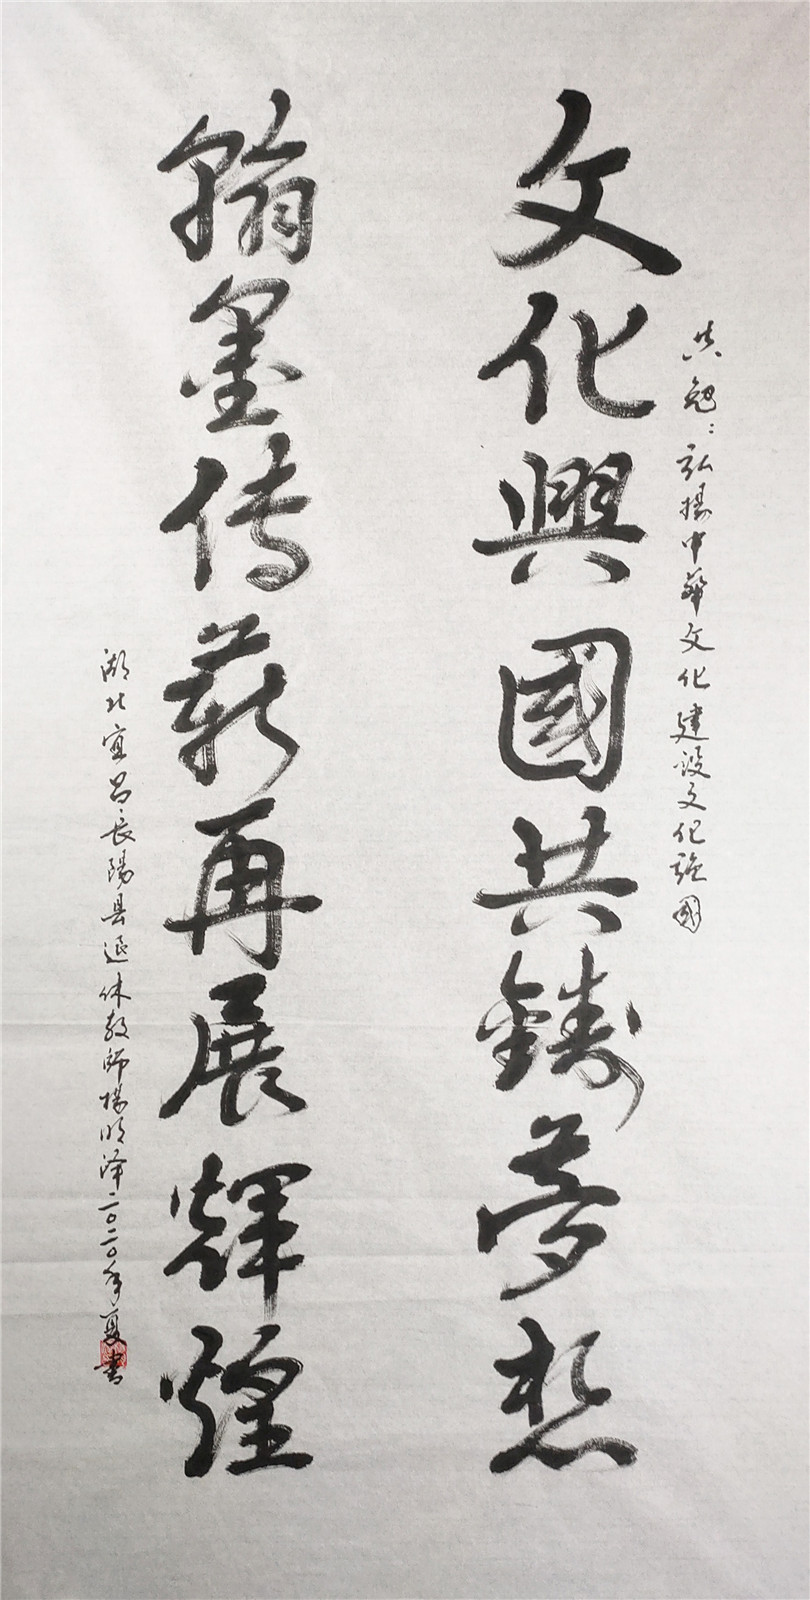 文化興國共鑄夢想
共勉：弘揚中華文化建设文化強國
翰墨传薪再展輝煌
湖北宜昌長陽县退休教師楊明泽二〇二〇年夏書